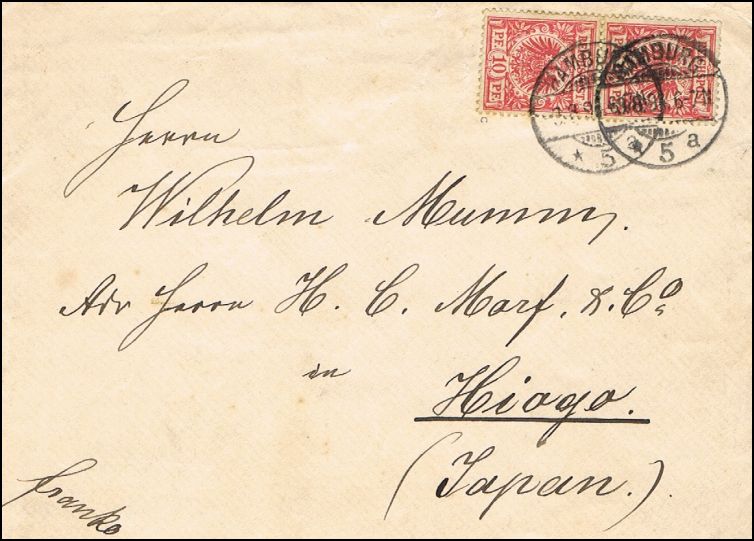 1 PF. 10 PF.
HAMBURG
HAMBURG
6-7N
★ 5 a
★ 5 a
Herrn
Wilhelm Mumm,
Adr Herrn H. C. Morf. & Co
in
Hiogo.
(Japan.)
franko